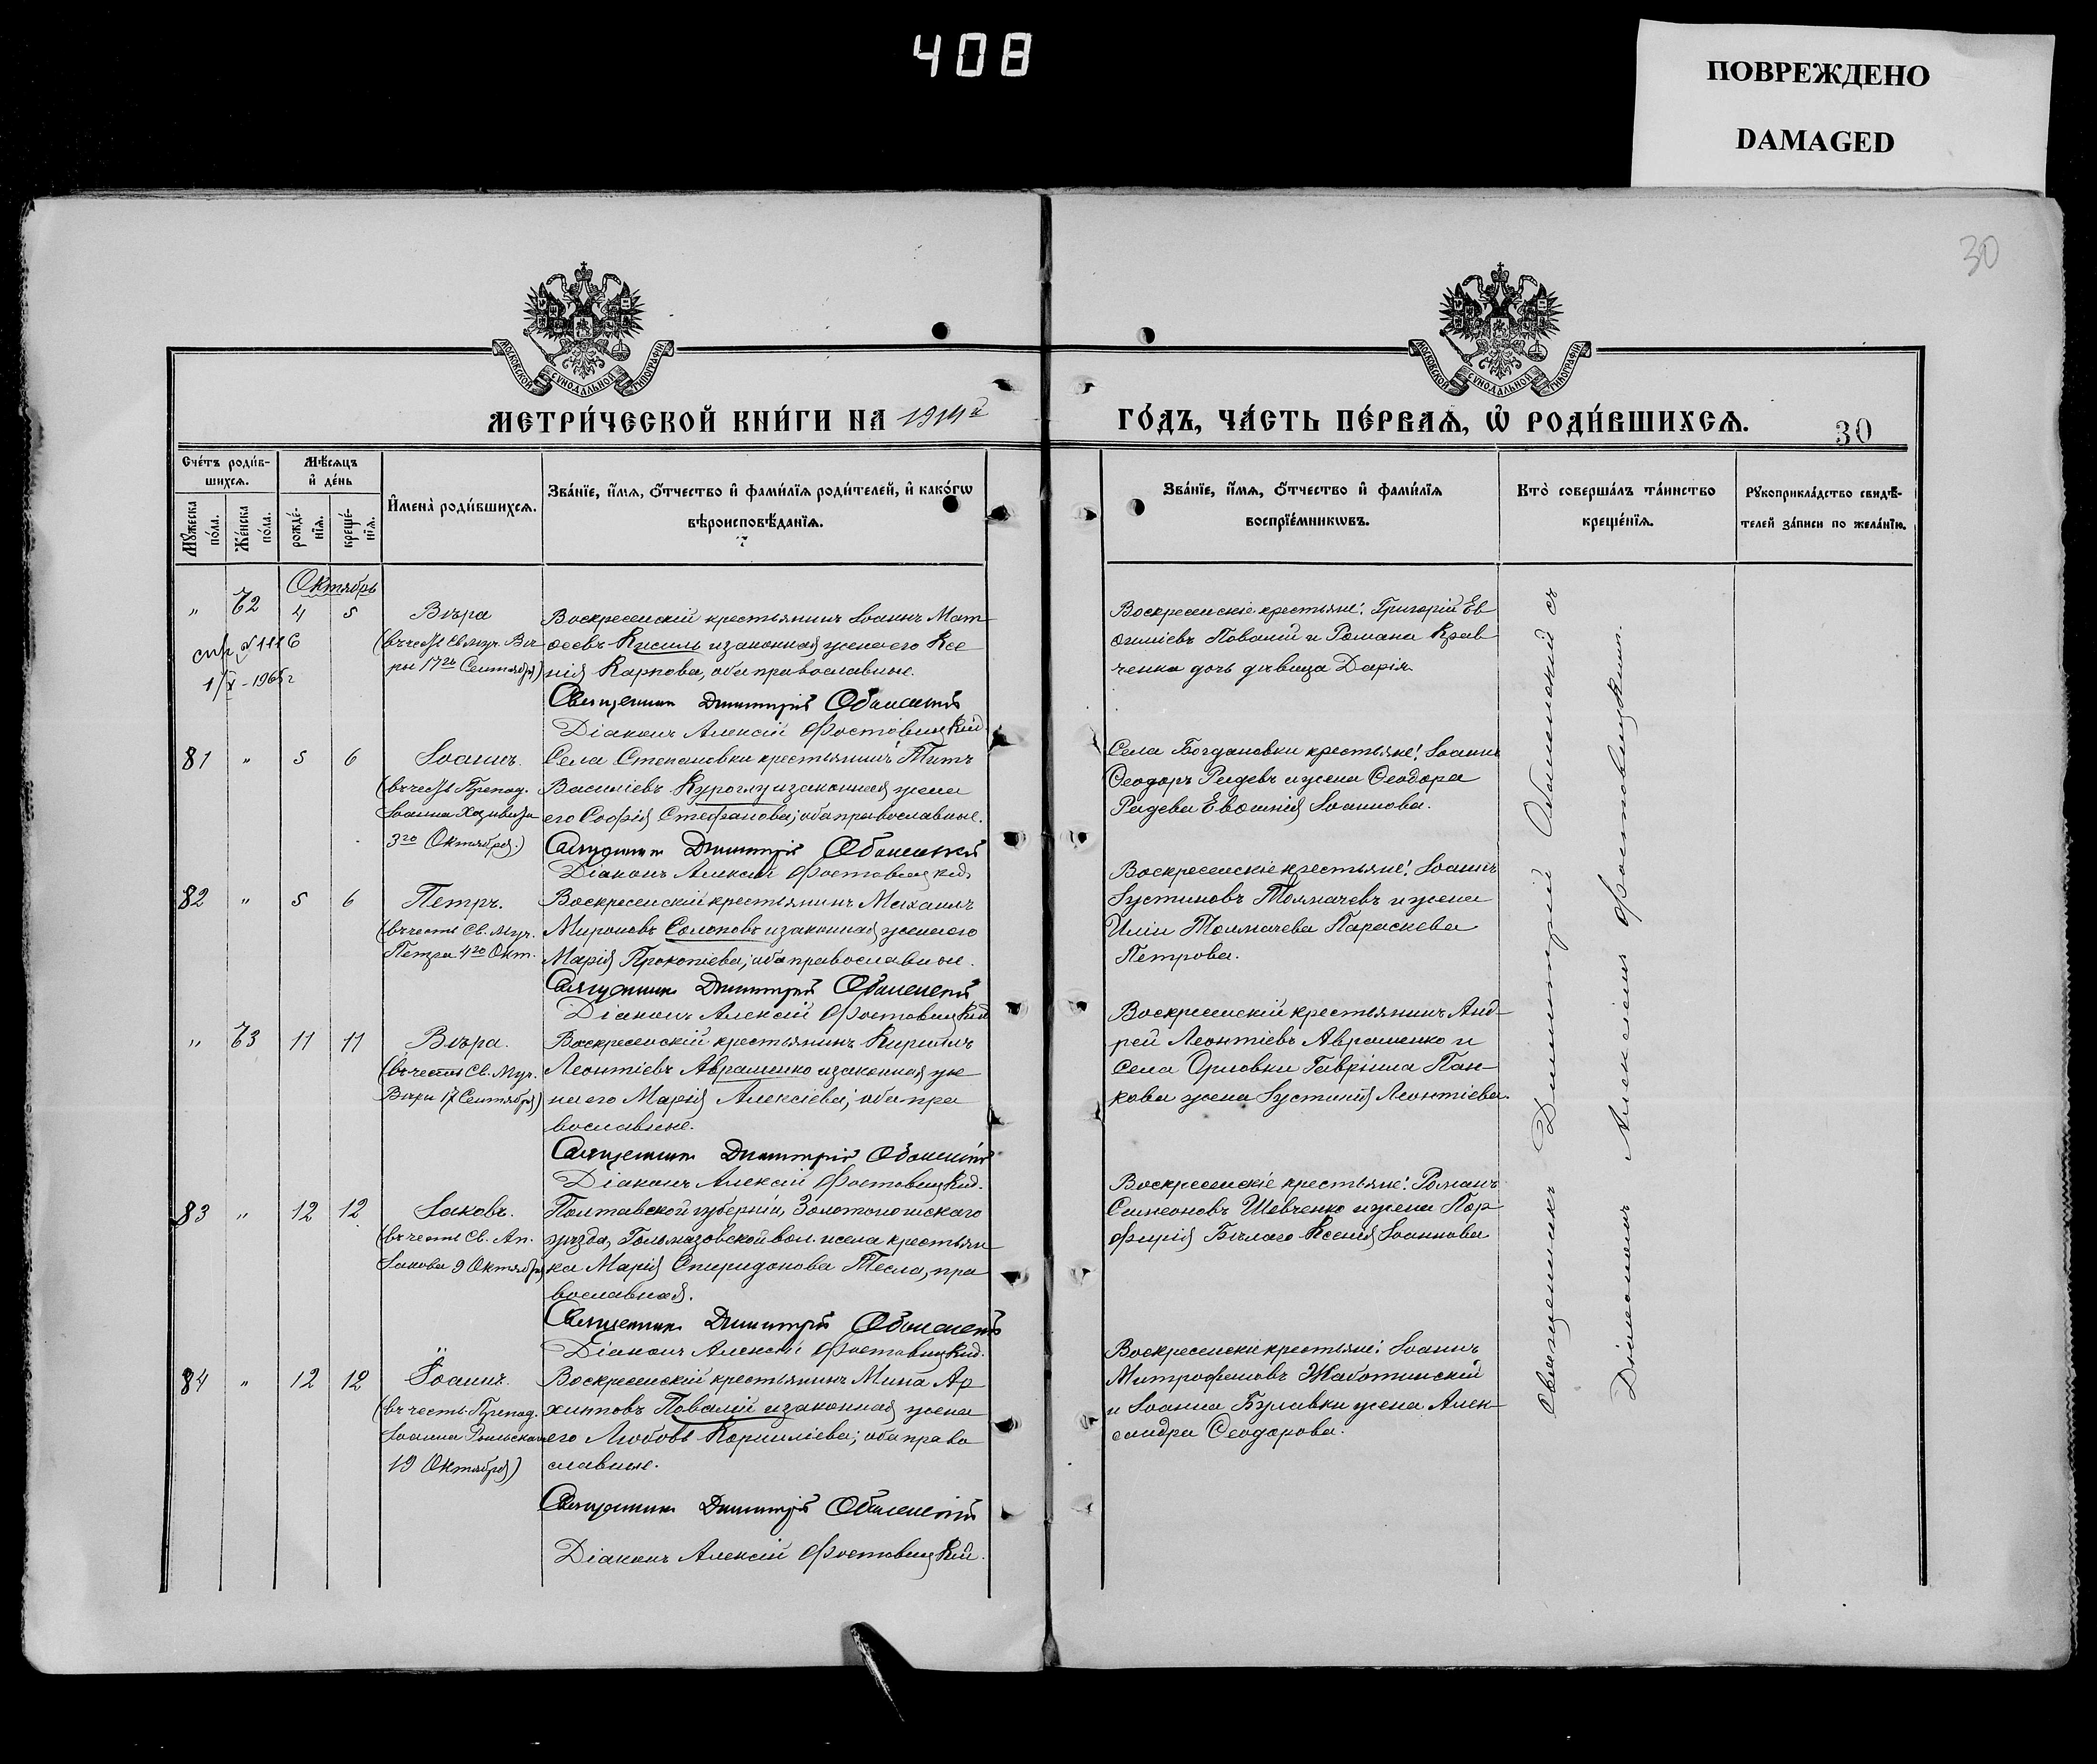 408
ПОВРЕЖДЕНО
DAMAGED
30
МОСКОВСКОЙ СѴНОДАЛЬНОЙ ТИПОГРАФІИ
МОСКОВСКОЙ СѴНОДАЛЬНОЙ ТИПОГРАФІИ
МЕТРИ́ЧЕСКОЙ КНИ́ГИ НА 1914й
ГО́ДЪ, ЧА́СТЬ ПЕ́РВАѦ, Ѡ҆ РОДИ́ВШИХСѦ.
30
Сче́тъ роди́в-
шихсѧ.
Мѣ́сѧцъ
и҆ де́нь
Мꙋ́жеска по́ла.
Же́нска по́ла.
рожде́-нїѧ.
креще́-нїѧ.
И҆мена̀ роди́вшихсѧ.
Зва́нїе, и҆́мѧ, ѻ҆́тчество и҆ фами́лїѧ роди́телей, и҆ како́гѡ
вѣроисповѣ́данїѧ.
Зва́нїе, и҆́мѧ, ѻ҆́тчество и҆ фами́лїѧ
воспрїе́мникѡвъ.
Кто̀ соверша́лъ та́инство
креще́нїѧ.
Рꙋкоприкла́дство свидѣ́-
телей за́писи по жела́нїю.
Октябрь
" 72 4 5 Вѣра
(въ честь Св. муч. Вѣ-
ры 17го Сентября)
1/X-1965г
Воскресенскій крестьянинъ Іоаннъ Мат-
ѳеевъ Кисиль и законная жена его Ксе
нія Карпова, оба православные.
Священник Димитрій Оболенскій
Діаконъ Алексій Фостовицкій.
Воскресенскіе крестьяне: Григорій Ев
ѳиміевъ Повалій и Романа Крав
ченка дочь дѣвица Дарія.
81 " 5 6 Іоаннъ.
(въ честь Препод.
Іоанна Хозивита
3го Октября.)
Села Степановки крестьянинъ Титъ
Василіевъ Куроглу и законная жена
его Софія Стефанова; оба православные.
Священник Димитрій Оболенскій
Діаконъ Алексій Фостовицкій
Села Богдановки крестьяне: Іоаннъ
Ѳеодоръ Радевъ и жена Ѳеодора
Радева Евѳимія Іоаннова.
82 " 5 6 Петръ.
(въ честь Св. Муч.
Петра 4го Окт.
Воскресенскій крестьянинъ Михаилъ
Мироновъ Солоповъ и законная жена его
Марія Прокопіева; оба православные.
Священник Димитрій Оболенскій
Діаконъ Алексій Фостовицкій
Воскресенскіе крестьяне: Іоаннъ
Іустиновъ Толмачевъ и жена
Иліи Толмачева Параскева
Петрова.
" 73 11 11 Вѣра.
(въ честь Св. Муч.
Вѣры 17 Сентября)
Воскресенскій крестьянинъ Кириллъ
Леонтіевъ Авраменко и законная же
на его Марія Алексіева; оба пра
вославные.
Священник Димитрій Оболенскій
Діаконъ Алексій Фостовицкій.
Воскресенскій крестьянинъ Анд-
рей Леонтіевъ Авраменко и
села Орловки Гавріила Пан-
кова жена Іустинія Леонтіева.
83 " 12 12 Іаковъ.
(въ честь Св. Ап.
Іакова 9 Октября
Полтавской губерніи, Золотоношскаго
уѣзда, Гольмазовской вол. и села крестьян-
ка Марія Спиридонова Тесла, пра
вославная.
Священник Димитрій Оболенскій
Діаконъ Алексій Фостовицкій.
Воскресенскіе крестьяне: Романъ
Симеоновъ Шевченко и жена Пор
фирія Бѣлаго Ксенія Іоаннова
84 " 12 12 Іоаннъ.
(въ честь Препод.
Іоанна Рыльскаго
19 Октября)
Воскресенскій крестьянинъ Мина Ар
хиповъ Повалій и законная жена
его Любовь Корниліева; оба право
славные.
Священник Димитрій Оболенскій
Діаконъ Алексій Фостовицкій.
Воскресенскіе крестьяне: Іоаннъ
Митрофановъ Жаботинскій
и Іоанна Булавки жена Алек-
сандра Ѳеодорова.
Священникъ Димитрій Оболенскій съ
Діакономъ Алексіемъ Фостовицкимъ.